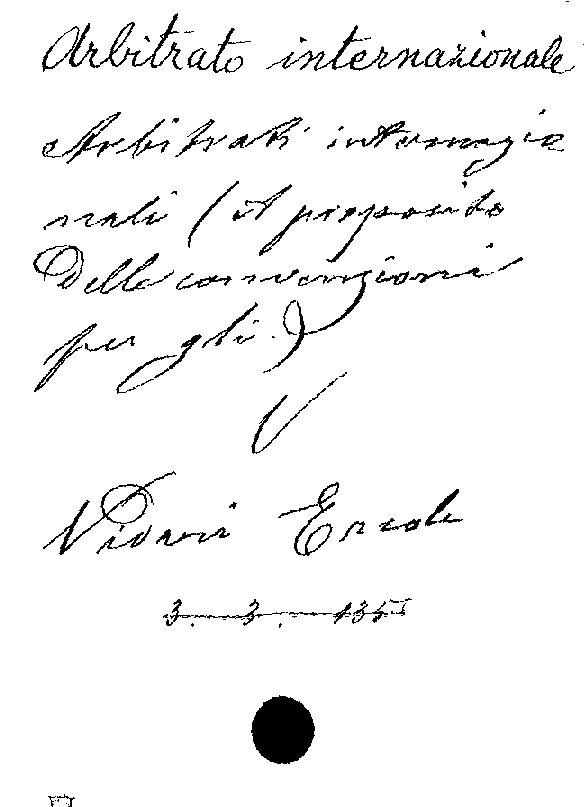 Arbitrato internazionale
Arbitrati internazio
nali (A proposito
Delle convenzioni
per gli.)
V
Vidari Ercole
3. 3. 135